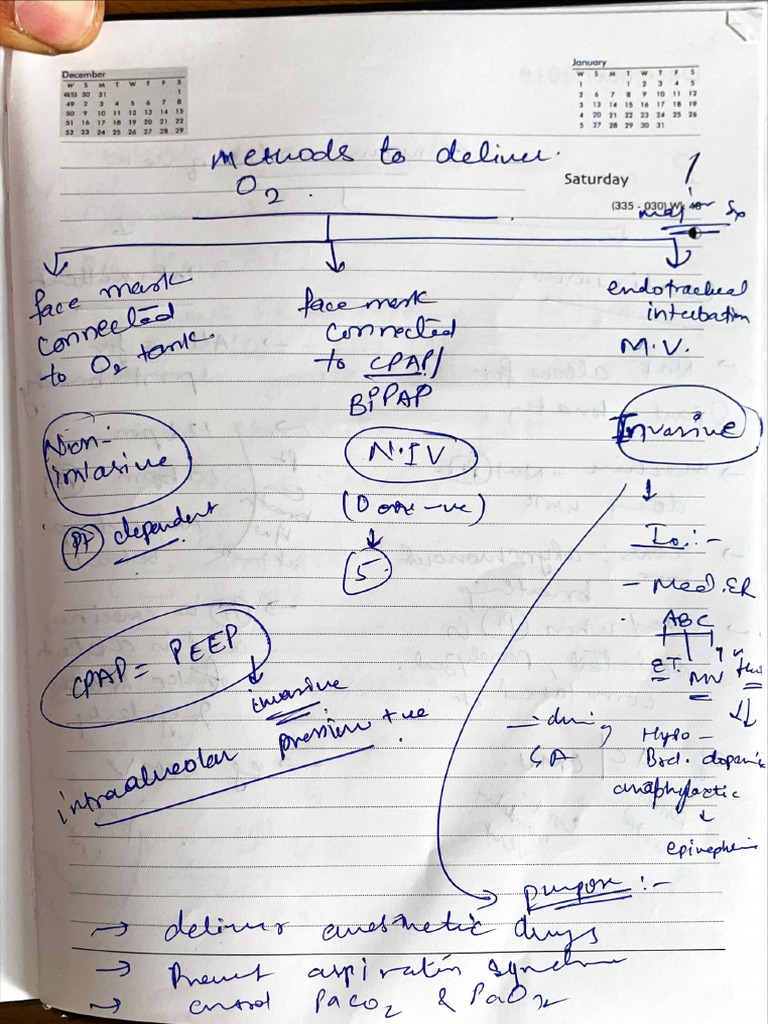 December
W S M T W T F S
48/53 30 31 1
49 2 3 4 5 6 7 8
50 9 10 11 12 13 14 15
51 16 17 18 19 20 21 22
52 23 24 25 26 27 28 29
January
W S M T W T F S
1 1 2 3 4 5
2 6 7 8 9 10 11 12
3 13 14 15 16 17 18 19
4 20 21 22 23 24 25 26
5 27 28 29 30 31
methods to deliver
O2.
Saturday 1
(335 - 030) Wk 48
major Sx
face mask
connected
to O2 tank.
Non-
invasive
pt dependent
face mask
connected
to CPAP/
BiPAP
N.IV
5
endotracheal
intubation
M.V.
Invasive
- Med. ER
ABC
ET. MV
- during
GA
Hypo -
dopamine
anaphylactic
↓
epinephrine
CPAP = PEEP
↓
invasive
intraalveolar pressure +ve
purpose :-
→ deliver anesthetic drugs
→ Prevent aspiration syndrome
→ control PaCO2 & PaO2